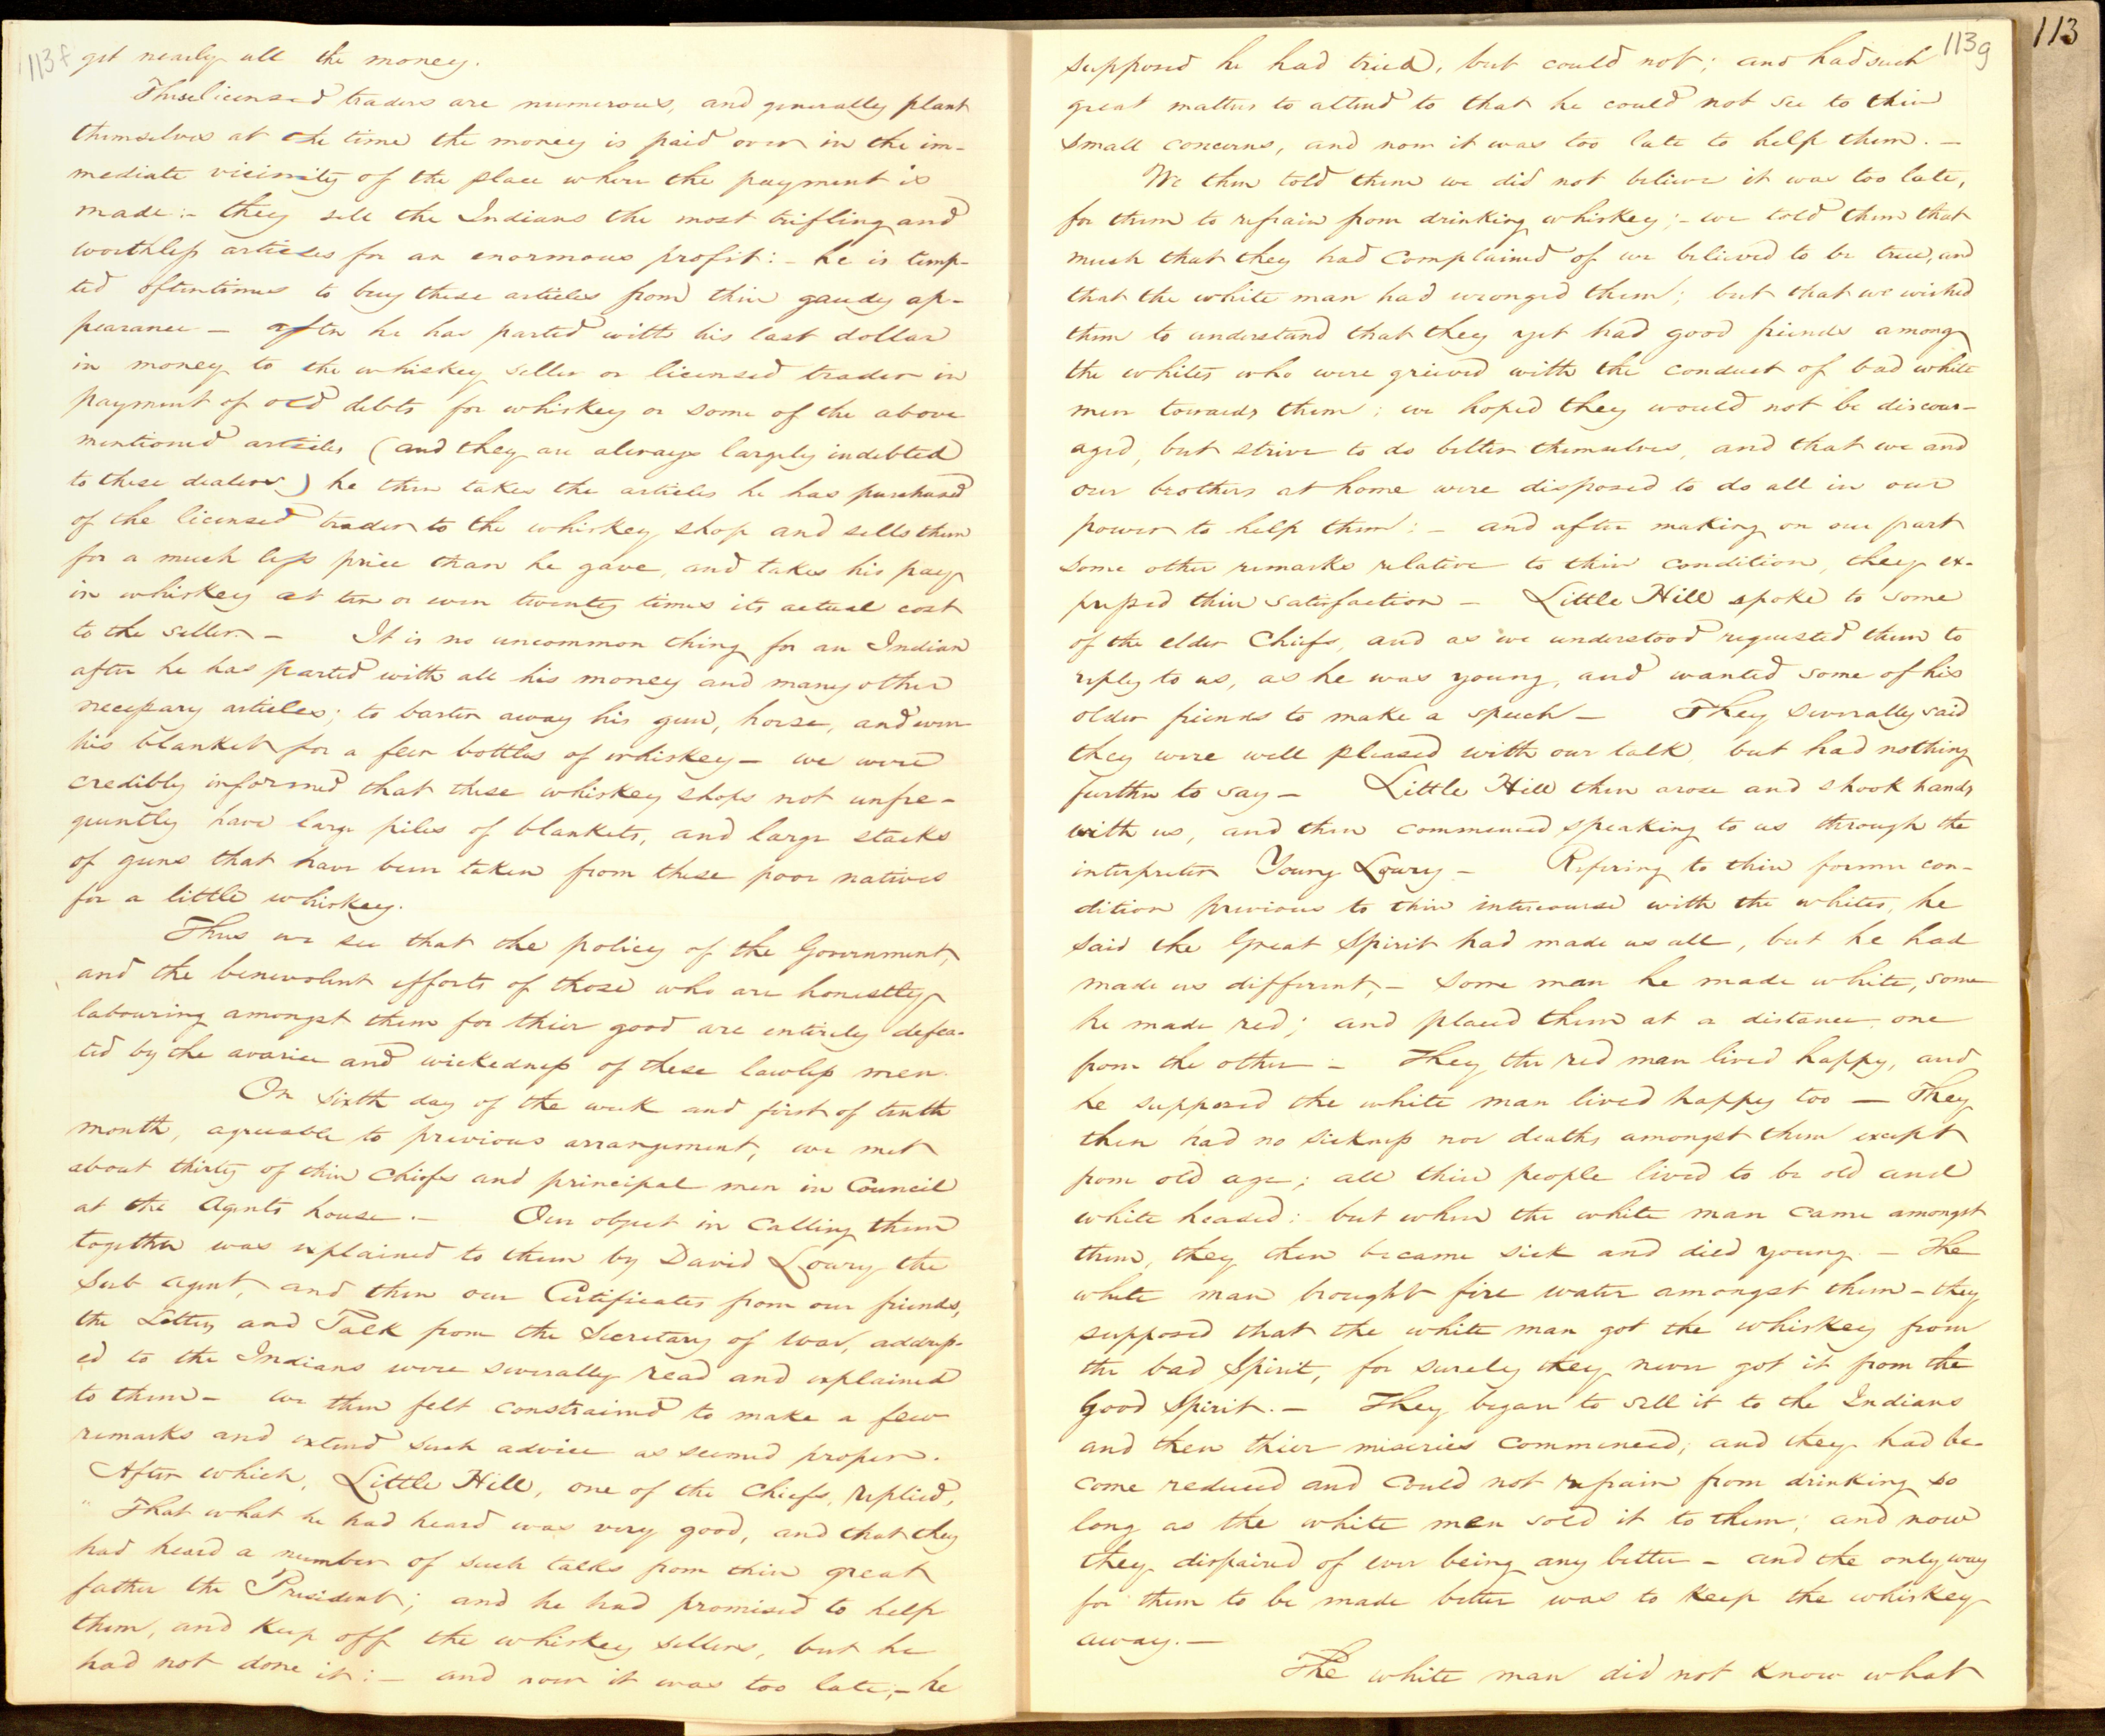 113f
get nearly all the money.
These licensed traders are numerous, and generally plant
themselves at the time the money is paid over in the im-
mediate vicinity of the place where the payment is
made:- they sell the Indians the most trifling and
worthless articles for an enormous profit:- he is temp-
ted oftentimes to buy these articles from thier gaudy ap-
pearance - after he has parted with his last dollar
in money to the whiskey seller or licensed trader in
payment of old debts for whiskey or some of the above
mentioned articles (and they are always largely indebted
to these dealers) he then takes the articles he has purchased
of the licensed trader to the whiskey shop and sells them
for a much less price than he gave, and takes his pay
in whiskey at ten or even twenty times its actual cost
to the seller. - It is no uncommon thing for an Indian
after he has parted with all his money and many other
necessary articles; to barter away his gun, horse, and even
his blanket for a few bottles of whiskey - we were
credibly informed that these whiskey shops not unfre-
quently have large piles of blankets, and large stacks
of guns that have been taken from these poor natives
for a little whiskey.
Thus we see that the policy of the Government,
and the benevolent efforts of those who are honestly
labouring amongst them for thier good are entirely defea-
ted by the avarice and wickedness of these lawless men.
On sixth day of the week and first of tenth
month, agreeable to previous arrangement, we met
about thirty of thier Chiefs and principal men in Council
at the Agents house. - Our object in calling them
together was explained to them by David Lowry the
Sub agent, and then our Certificates from our friends,
the Letters and Talk from the Secretary of War, address-
ed to the Indians were severally read and explained
to them - we then felt constrained to make a few
remarks and extend such advice as seemed proper.
After which, Little Hill, one of the Chiefs, replied,
" That what he had heard was very good, and that they
had heard a number of such talks from thier great
father the President; and he had promised to help
them, and keep off the whiskey sellers, but he
had not done it:- and now it was too late;- he
113g
113
supposed he had tried, but could not; and had such
great matters to attend to that he could not see to thier
small concerns, and now it was too late to help them. -
We then told them we did not believe it was too late,
for them to refrain from drinking whiskey;- we told them that
much that they had complained of we believed to be true, and
that the white man had wronged them; but that we wished
them to understand that they yet had good friends among
the whites who were grieved with the conduct of bad white
men towards them; we hoped they would not be discour-
aged, but strive to do better themselves, and that we and
our brothers at home were disposed to do all in our
power to help them:- and after making on our part
some other remarks relative to thier condition, they ex-
pressed thier satisfaction - Little Hill spoke to some
of the elder Chiefs, and as we understood requested them to
reply to us, as he was young, and wanted some of his
older friends to make a speech - They severally said
they were well pleased with our talk, but had nothing
further to say - Little Hill then arose and shook hands
with us, and then commenced speaking to us through the
interpreter Young Lowry - Refering to thier former con-
dition previous to thier intercourse with the whites, he
said the Great Spirit had made us all, but he had
made us different,- some man he made white, some
he made red; and placed them at a distance one
from the other - They the red man lived happy, and
he supposed the white man lived happy too - They
then had no sickness nor deaths amongst them except
from old age; all thier people lived to be old and
white headed: but when the white man came amongst
them, they then became sick and died young. - The
white man brought fire water amongst them - they
supposed that the white man got the whiskey from
the bad Spirit, for surely they never got it from the
Good Spirit. - They began to sell it to the Indians
and then thier miseries commenced; and they had be-
come reduced and could not refrain from drinking so
long as the white men sold it to them; and now
they dispaired of ever being any better - and the only way
for them to be made better was to keep the whiskey
away. -
The white man did not know what